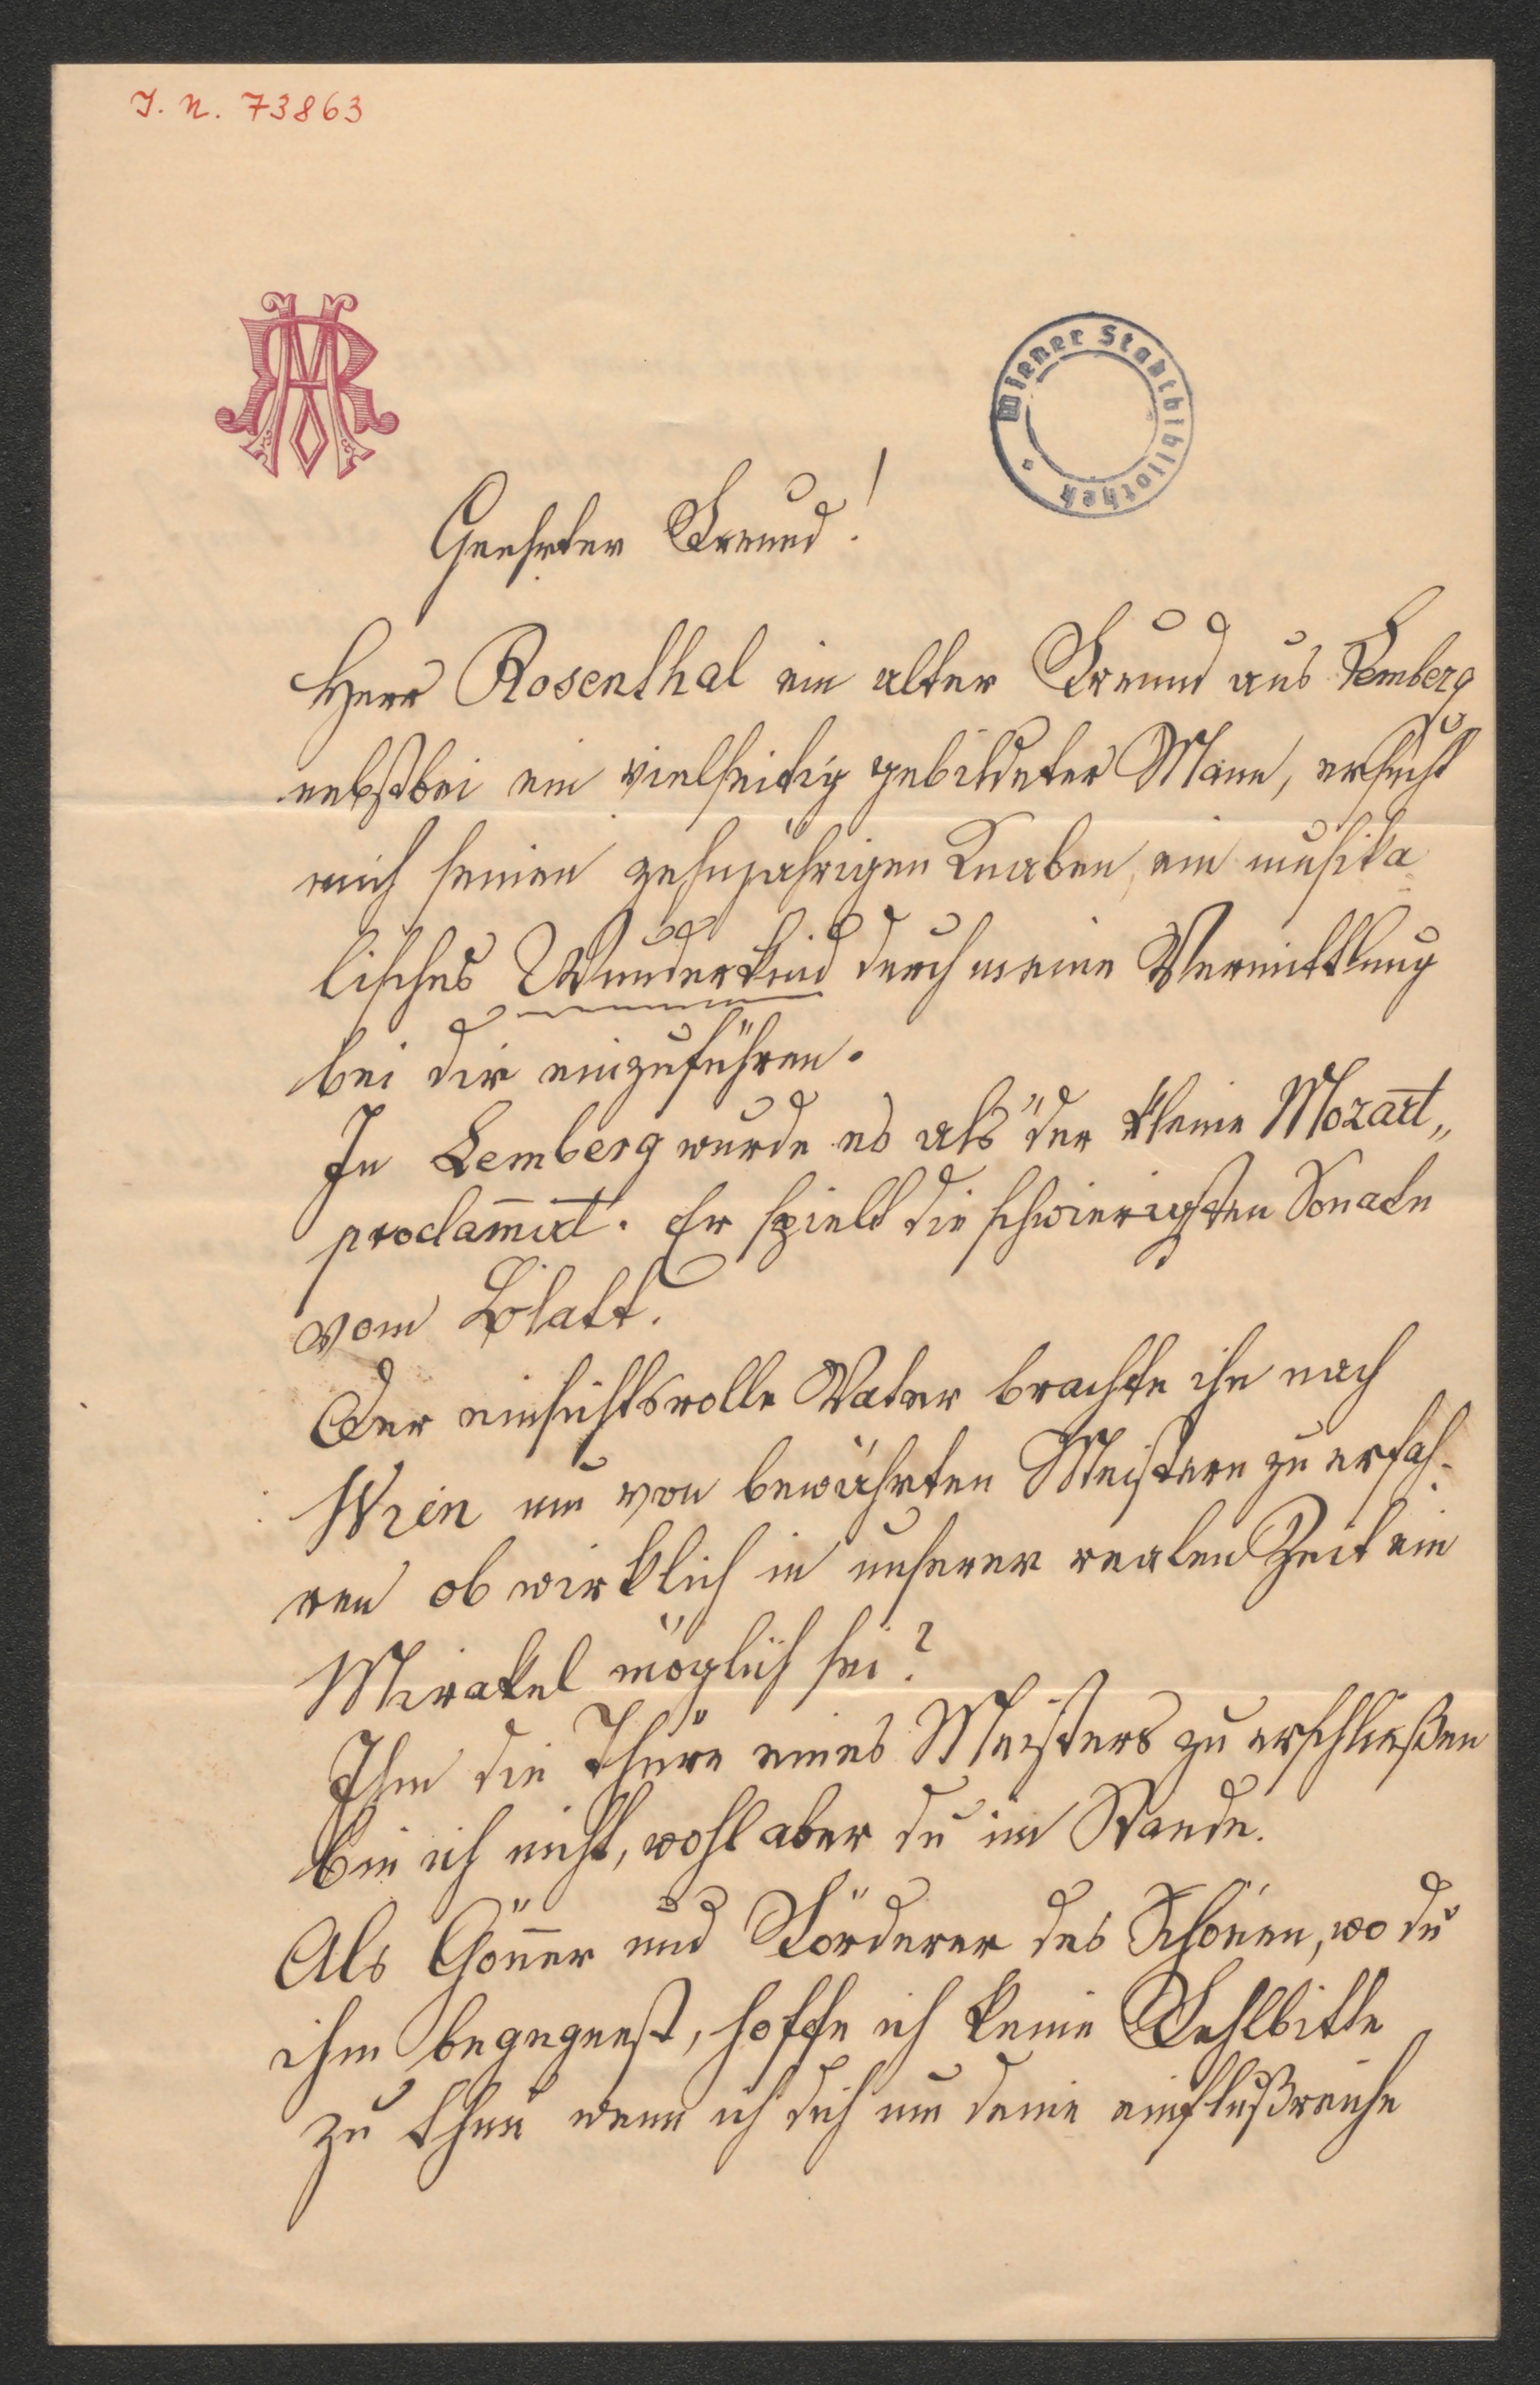 I. N. 73863
AR
Wiener Stadtbibliothek
Geehrter Freund!
Herr Rosenthal ein alter Freund aus Lemberg
nebstbei ein vielseitig gebildeter Mann, ersucht
mich seinen zehnjährigen Knaben, ein musika
lisches Wunderkind durch meine Vermittlung
bei dir einzuführen.
In Lemberg wurde es als "der kleine Mozart„
proclam̅irt. Er spielt die schwierigsten Sonate
vom Blatt.
Der einsichtsvolle Vater brachte ihn nach
Wien um von bewährten Meistern zu erfah-
ren ob wirklich in unserer realen Zeit ein
Mirakel möglich sei?
Ihm die Thüre eines Meisters zu erschließen
bin ich nicht, wohl aber du im Stande.
Als Gön̅er und Förderer des Schönen, wo du
ihm begegnest, hoffe ich keine Fehlbitte
zu thun wenn ich dich um deine einflußreiche